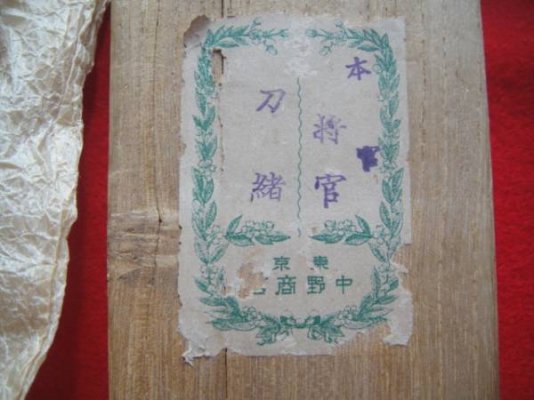 本
将官
刀緒
東京
中野商